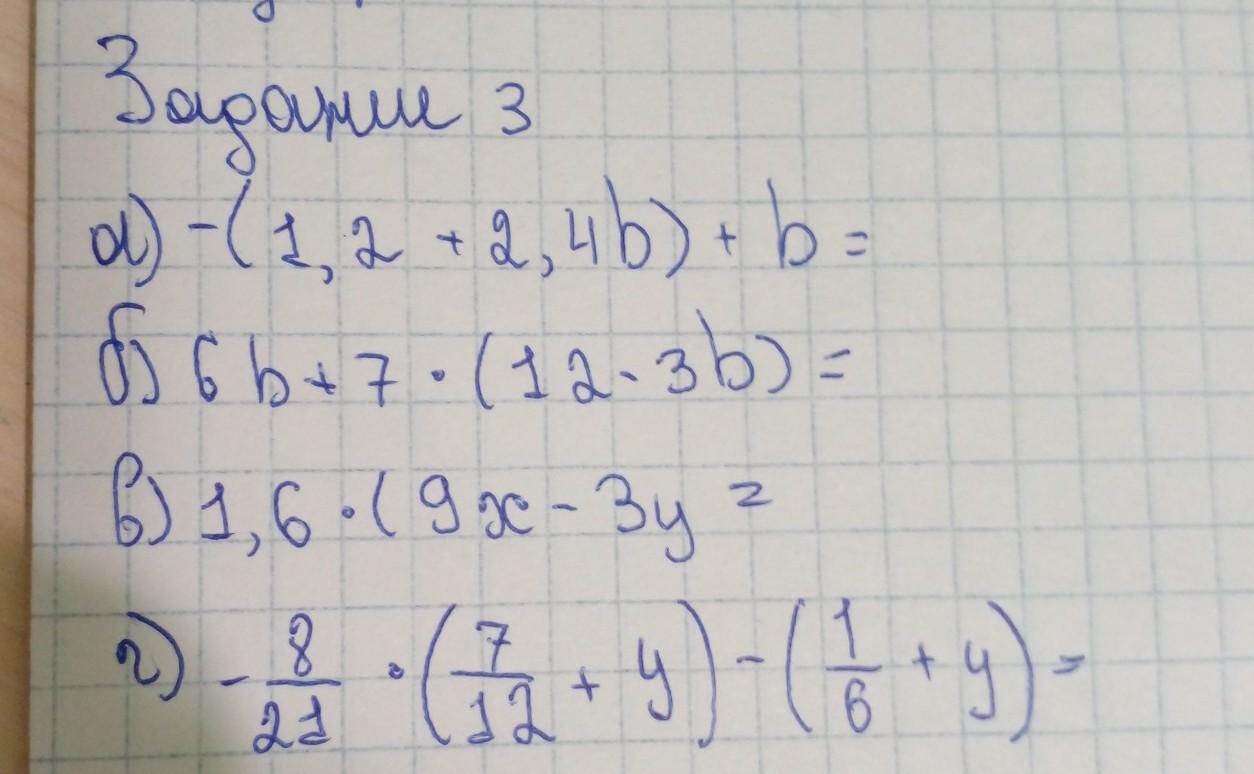 Задание 3
а) -(1,2 + 2,4b) + b =
б) 6b + 7 · (12 - 3b) =
в) 1,6 · (9x - 3y =
г) - 8/21 · (7/12 + y) - (1/6 + y) =